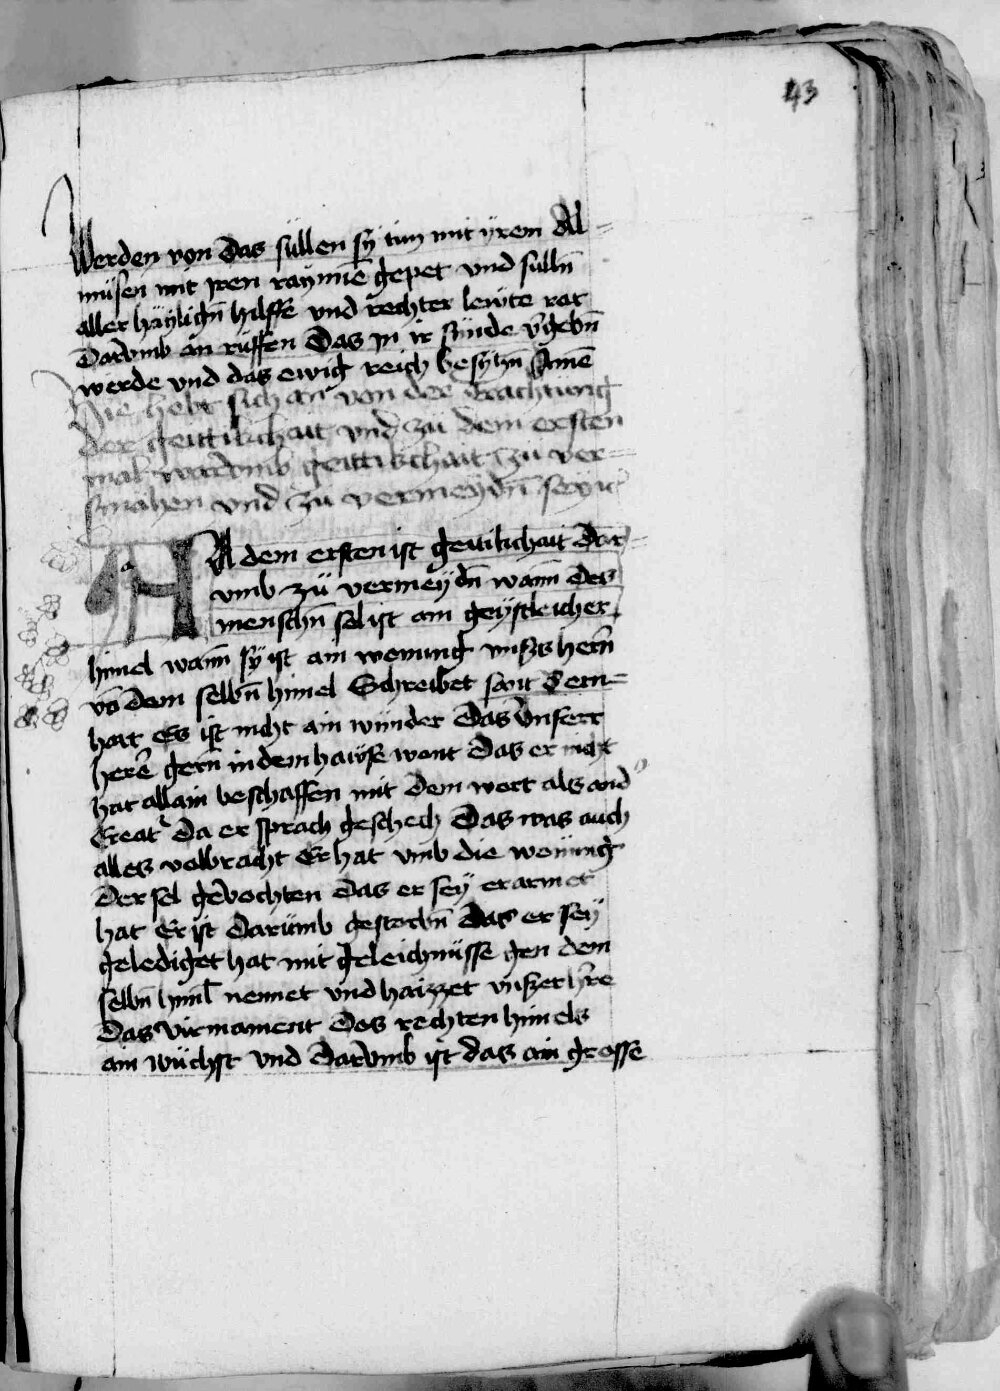 43
Werden von das süllen sÿ tün mit ÿrem Al=
müsen mit jren raÿmē gepet vnd sulln̄
aller häylign̄ hilffe vnd rechter lewte rat
Darvmb an rüffen Das jn ir sünde v̄gebn̄
werde vnd das ewig reich besytzn̄ Amē
Hie hebt sich an von der trachtung
der geittikchait vnd zü dem ersten
mal warvmb geittikchait zü ver=
smähen vnd zü vermeÿdn̄ seẏ
A dem ersten ist geitikchait Dar=
vmb zü vermeÿdn̄ wann des
menschn̄ sel ist ain geÿstleicher
himel wann sÿ ist ain wonung vnsßs hern̄
vō dem selbn̄ himel Schreibet sant Bern=
hart Es ist nicht ain wunder Das Vnserr
herē gern in dem hawse wont Das er nicht
hat allain beschaffen mit dem wort als and̓
Creat̓ Da er sprach geschech Das was auch
alles volbracht Er hat vmb die wonüng
Der sel gevochten das er seÿ erarnet
hat Er ist darümb gestorbn̄ das er seÿ
gelediget hat mit geleichnüsse gen dem
selbn̄ himl nennet vnd haizzet vnßer h̄re
Das virmament Des rechten himels
ain wüchst vnd darvmb ist das ain grosse